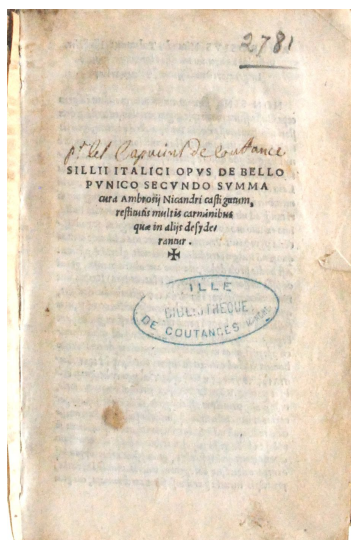 2781
pr les Capucins de Couttance
SILLII ITALICI OPVS DE BELLO
PVNICO SECVNDO SVMMA
cura Ambrosij Nicandri castigatum,
restitutis multis carminibus
quæ in alijs desyde/
rantur.
ILLE
BIBLIOTHEQUE
DE COUTANCES